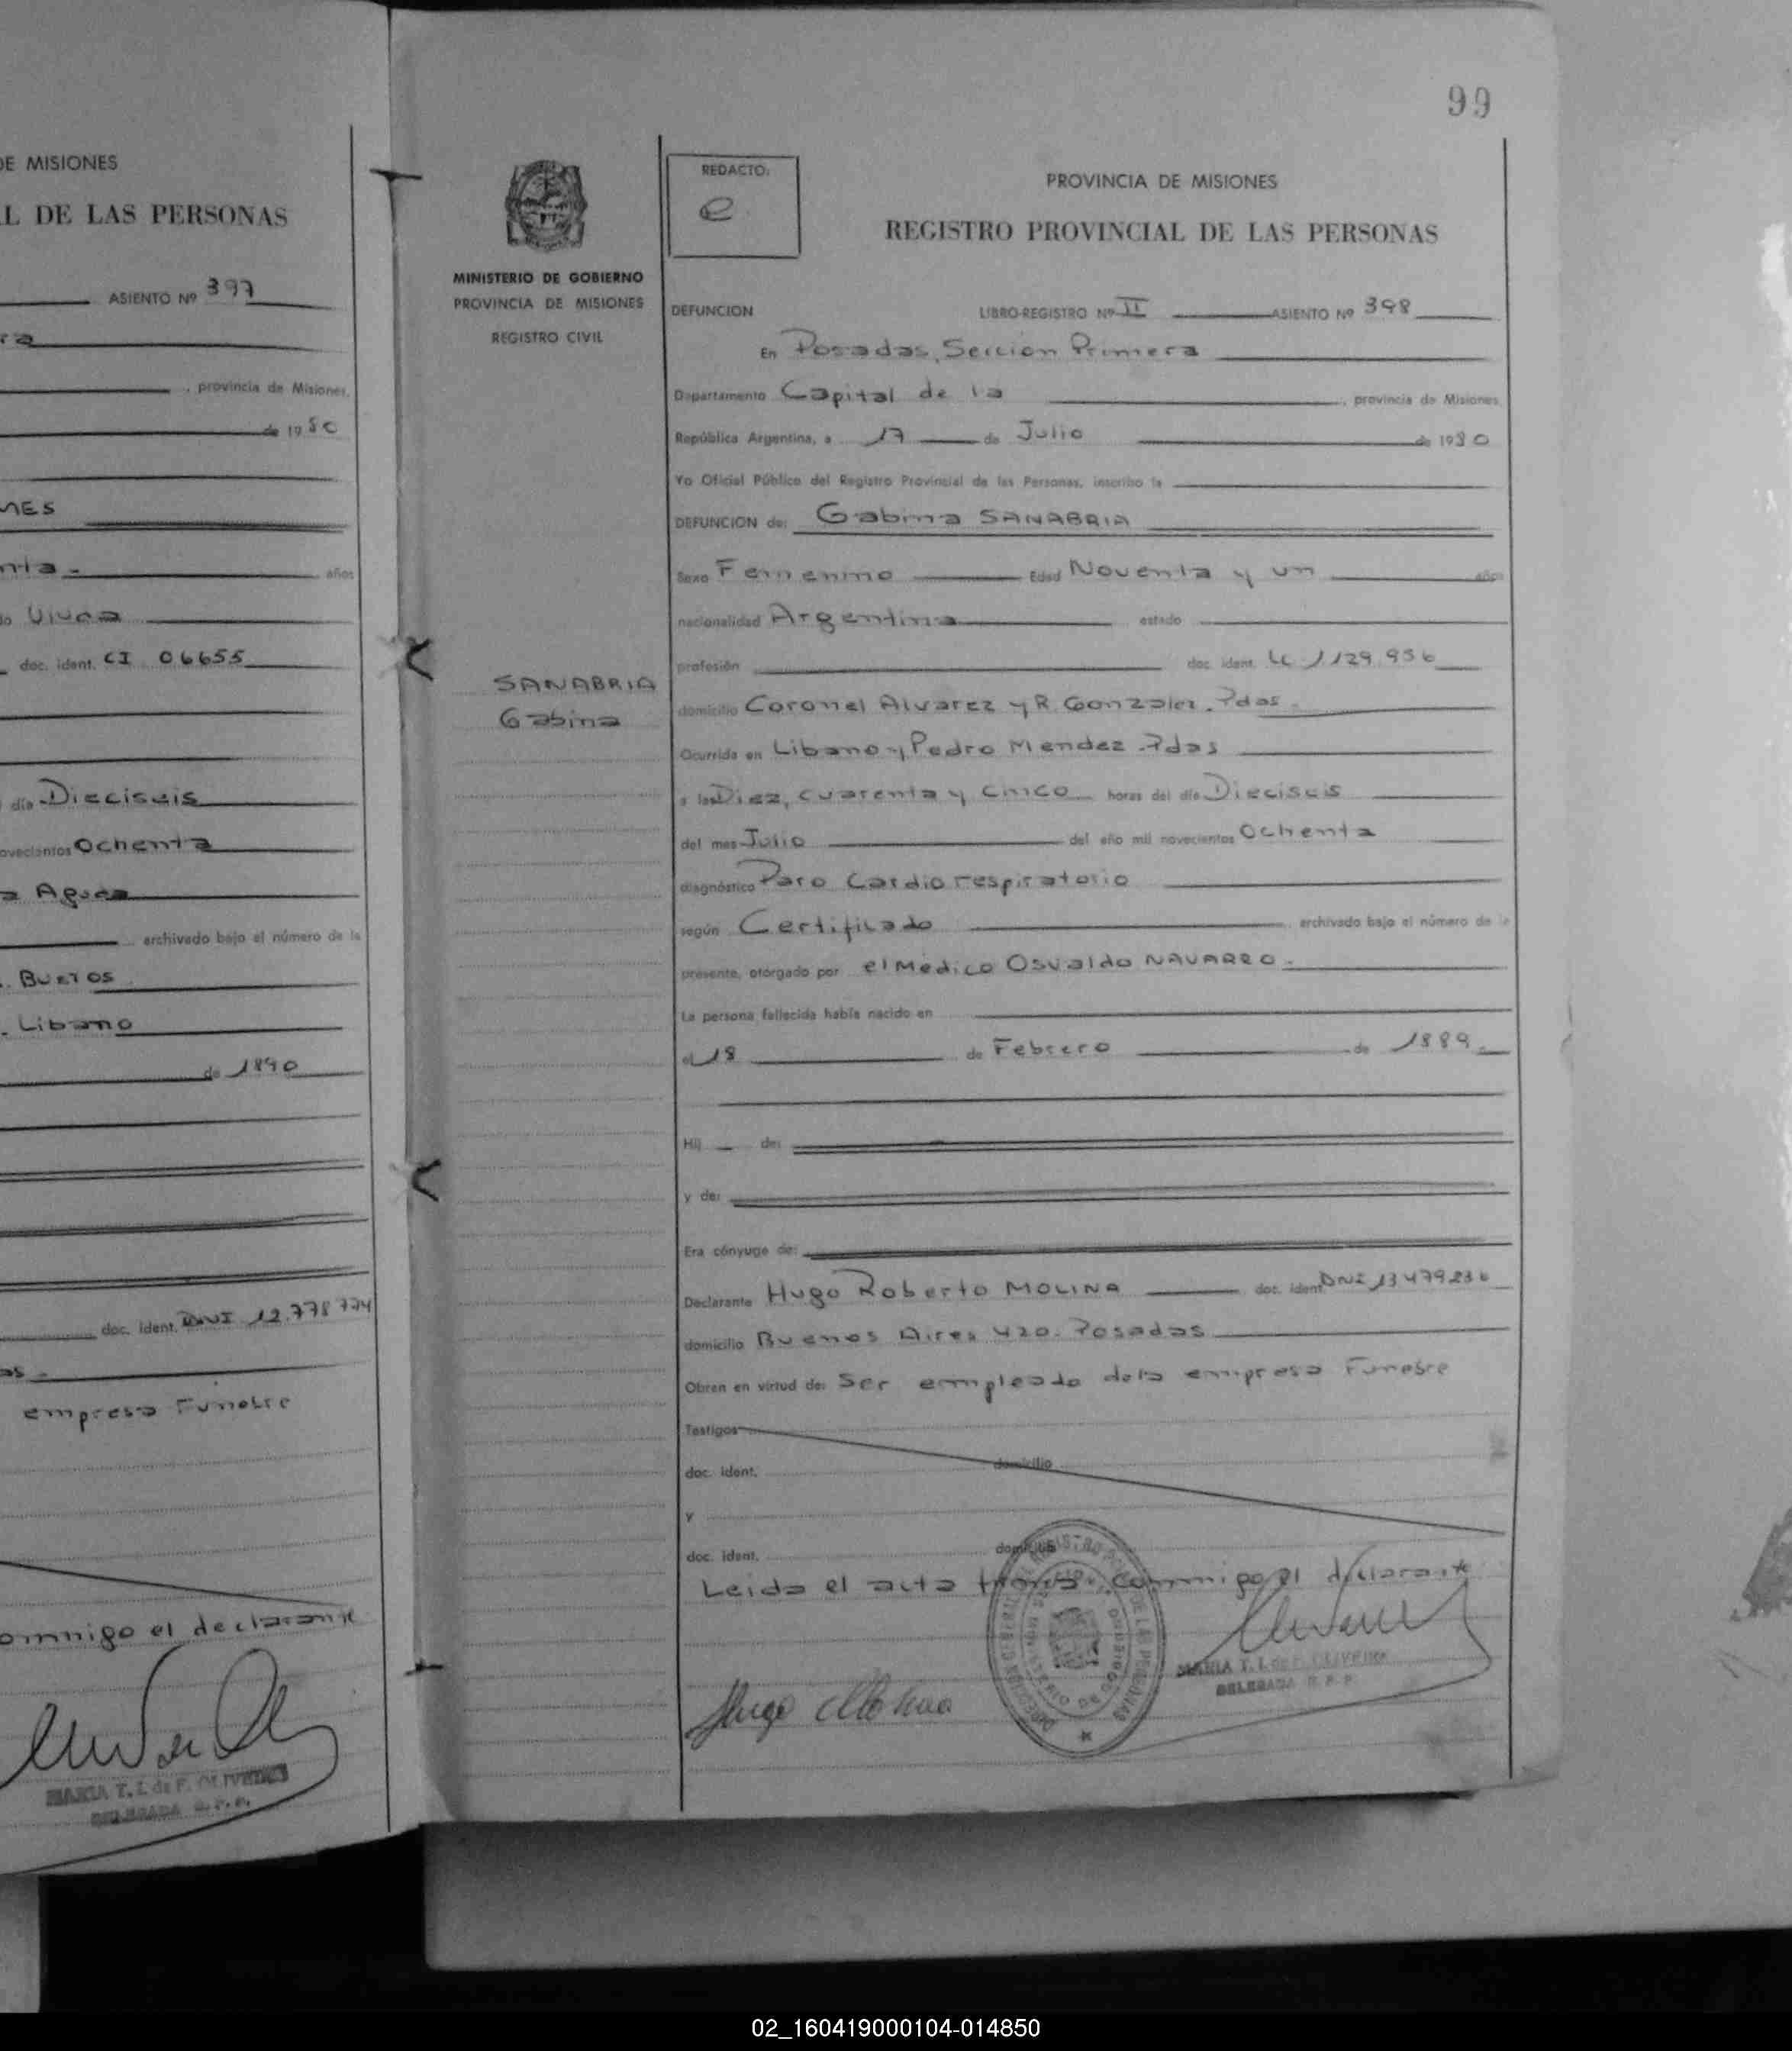 DE MISIONES
L DE LAS PERSONAS
ASIENTO Nº 397
ra
, provincia de Misiones,
de 1980
MES
nta. años
do Viuda
doc. ident. CI 06655
día Dieciseis
ovecientos Ochenta
a Aguda
archivado bajo el número de la
. Bustos
. Libano
de 1890
doc. ident. DNI 12.778.774
as.
empresa Funebre
onmigo el declarante
MARIA T. I. de F. OLIVEIRA
DELEGADA R. P. P.
99
MINISTERIO DE GOBIERNO
PROVINCIA DE MISIONES
REGISTRO CIVIL
SANABRIA
Gabina
REDACTO:
e
PROVINCIA DE MISIONES
REGISTRO PROVINCIAL DE LAS PERSONAS
DEFUNCION LIBRO-REGISTRO Nº II ASIENTO Nº 398
En Posadas, Sección Primera
Departamento Capital de la , provincia de Misiones,
República Argentina, a 17 de Julio de 1980
Yo Oficial Público del Registro Provincial de las Personas, inscribo la
DEFUNCION de: Gabina SANABRIA
Sexo Femenino Edad Noventa y un años
nacionalidad Argentina estado
profesión doc. ident. LC 1129.956
domicilio Coronel Alvarez y R. Gonzalez. Pdas.
Ocurrida en Libano y Pedro Mendez. Pdas
a las Diez, cuarenta y cinco horas del día Dieciseis
del mes Julio del año mil novecientos Ochenta
diagnóstico Paro Cardio respiratorio
según Certificado archivado bajo el número de la
presente, otorgado por el Médico Osvaldo NAVARRO.
La persona fallecida había nacido en
el 18 de Febrero de 1889.
Hij de:
y de:
Era cónyuge de:
Declarante Hugo Roberto MOLINA doc. ident DNI 13479236
domicilio Buenos Aires 420. Posadas
Obran en virtud de: Ser empleado de la empresa Funebre
Testigos
doc. ident. domicilio
y
doc. ident. domicilio
Leida el acta firma conmigo el declarante
Hugo Molina
MARIA T. I. de F. OLIVEIRA
DELEGADA R. P. P.
02_160419000104-014850